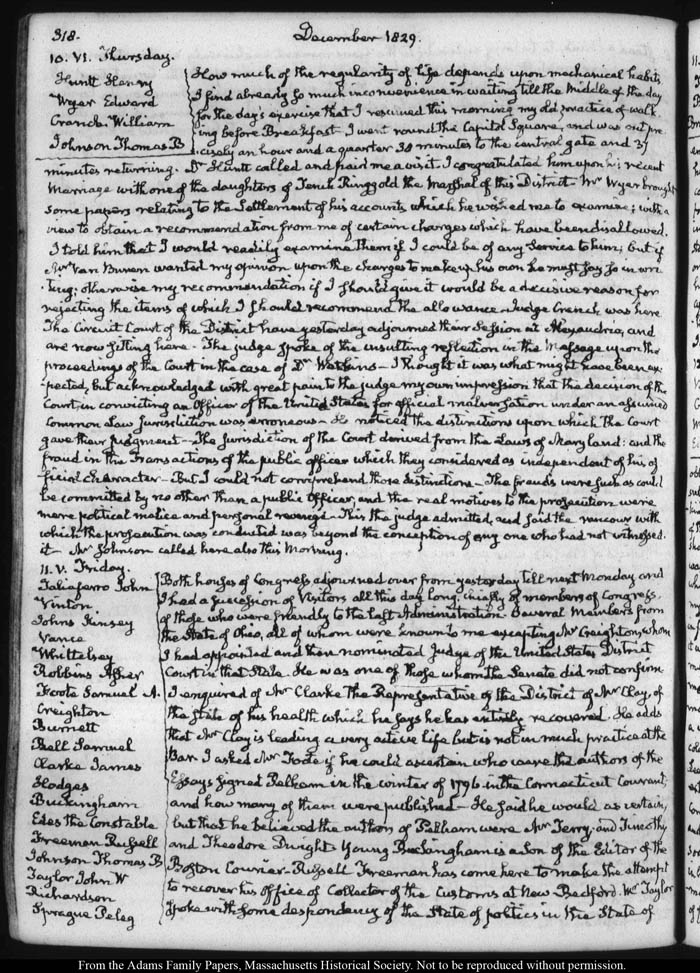 318.
December 1829.
10. VI. Thursday.
Huntt Henry
Wyer Edward
Cranch. William
Johnson Thomas B
How much of the regularity of life depends upon mechanical habits
I find already so much inconvenience in waiting till the middle of the day
for the day's exercise that I resumed this morning my old practice of walk-
ing before Breakfast. I went round the Capitol Square, and was out pre-
cisely an hour and a quarter 38 minutes to the central gate and 37
minutes returning. Dr Huntt called and paid me a visit. I congratulated him upon his recent
Marriage with one of the daughters of Tench Ringgold the Marshal of this District. Mr Wyer brought
some papers relating to the Settlement of his accounts which he wished me to examine; with a
view to obtain a recommendation from me of certain charges which have been disallowed.
I told him that I would readily examine them if I could be of any service to him; but if
Mr Van Buren wanted my opinion upon the charges to make up his own he must say so in wri-
ting; otherwise my recommendation if I should give it would be a decisive reason for
rejecting the items of which I should recommend the allowance. Judge Cranch was here.
The Circuit Court of the District have yesterday adjourned their Session at Alexandria, and
are now sitting here. The judge spoke of the insulting reflection in the Message upon the
proceedings of the Court in the case of Dr Watkins— I thought it was what might have been ex-
pected, but acknowledged with great pain to the judge my own impression that the decision of the
Court, in convicting an Officer of the United States for official malversation under an assumed
Common Law jurisdiction was erroneous— He noticed the distinctions upon which the Court
gave their judgment— The jurisdiction of the Court derived from the Laws of Maryland: and the
fraud in the transactions of the public officer which they considered as independent of his of-
ficial Character— But I could not comprehend those distinctions— The frauds were such as could
be committed by no other than a public Officer, and the real motives to the prosecution were
mere political malice and personal revenge. This the judge admitted, and said the rancour with
which the prosecution was conducted was beyond the conception of any one who had not witnessed
it— Mr Johnson called here also this Morning.
11. V. Friday.
Taliaferro John
Vinton
Johns Kinsey
Vance
Whittelsey
Robbins Asher
Foote Samuel A.
Creighton
Burnett
Bell Samuel
Clarke James
Hodges
Buckingham
Edes the Constable
Freeman Russell
Johnson Thomas B
Taylor John W
Richardson
Sprague Peleg
Both houses of Congress adjourned over from yesterday till next Monday and
I had a succession of Visitors all this day long, chiefly of members of Congress,
of those who were friendly to the last Administration. Several Members from
the State of Ohio, all of whom were known to me excepting Mr Creighton, whom
I had appointed and then nominated Judge of the United States District
Court in that State. He was one of those whom the Senate did not confirm
I enquired of Mr Clarke the Representative of the District of Mr Clay, of
the state of his health which he says he has entirely recovered. He adds
that Mr Clay is leading a very active life but is not in much practice at the
Bar. I asked Mr Foote if he could ascertain who were the authors of the
Essays signed Pelham in the winter of 1796 in the Connecticut Courant,
and how many of them were published— He said he would ascertain,
but that he believed the authors of Pelham were Mr Terry, and Timothy
and Theodore Dwight. Young Buckingham is a Son of the Editor of the
Boston Courier— Russell Freeman has come here to make the attempt
to recover his Office of Collector of the Customs at New-Bedford. Mr Taylor
spoke with some despondency of the State of politics in the State of
From the Adams Family Papers, Massachusetts Historical Society. Not to be reproduced without permission.